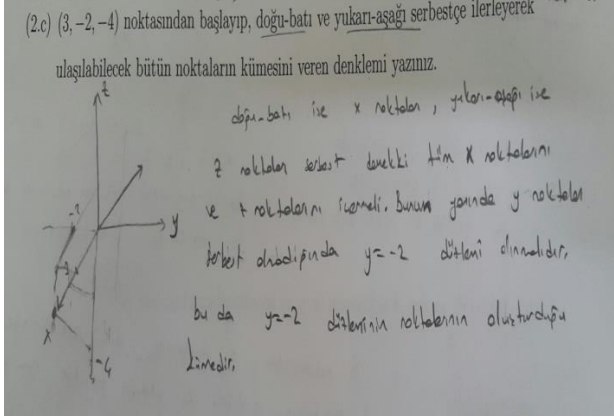 (2.c) (3, −2, −4) noktasından başlayıp, doğu-batı ve yukarı-aşağı serbestçe ilerleyerek
ulaşılabilecek bütün noktaların kümesini veren denklemi yazınız.
z
doğu-batı ise x noktaları, yukarı-aşağı ise
z noktaları serbest demekki tüm x noktalarını
-2
ve z noktalarını içermeli. Bunun yanında y noktaları
y
serbest olmadığında y=-2 düzlemi alınmalıdır,
3
x
bu da y=-2 düzleminin noktalarının oluşturduğu
-4
kümedir.